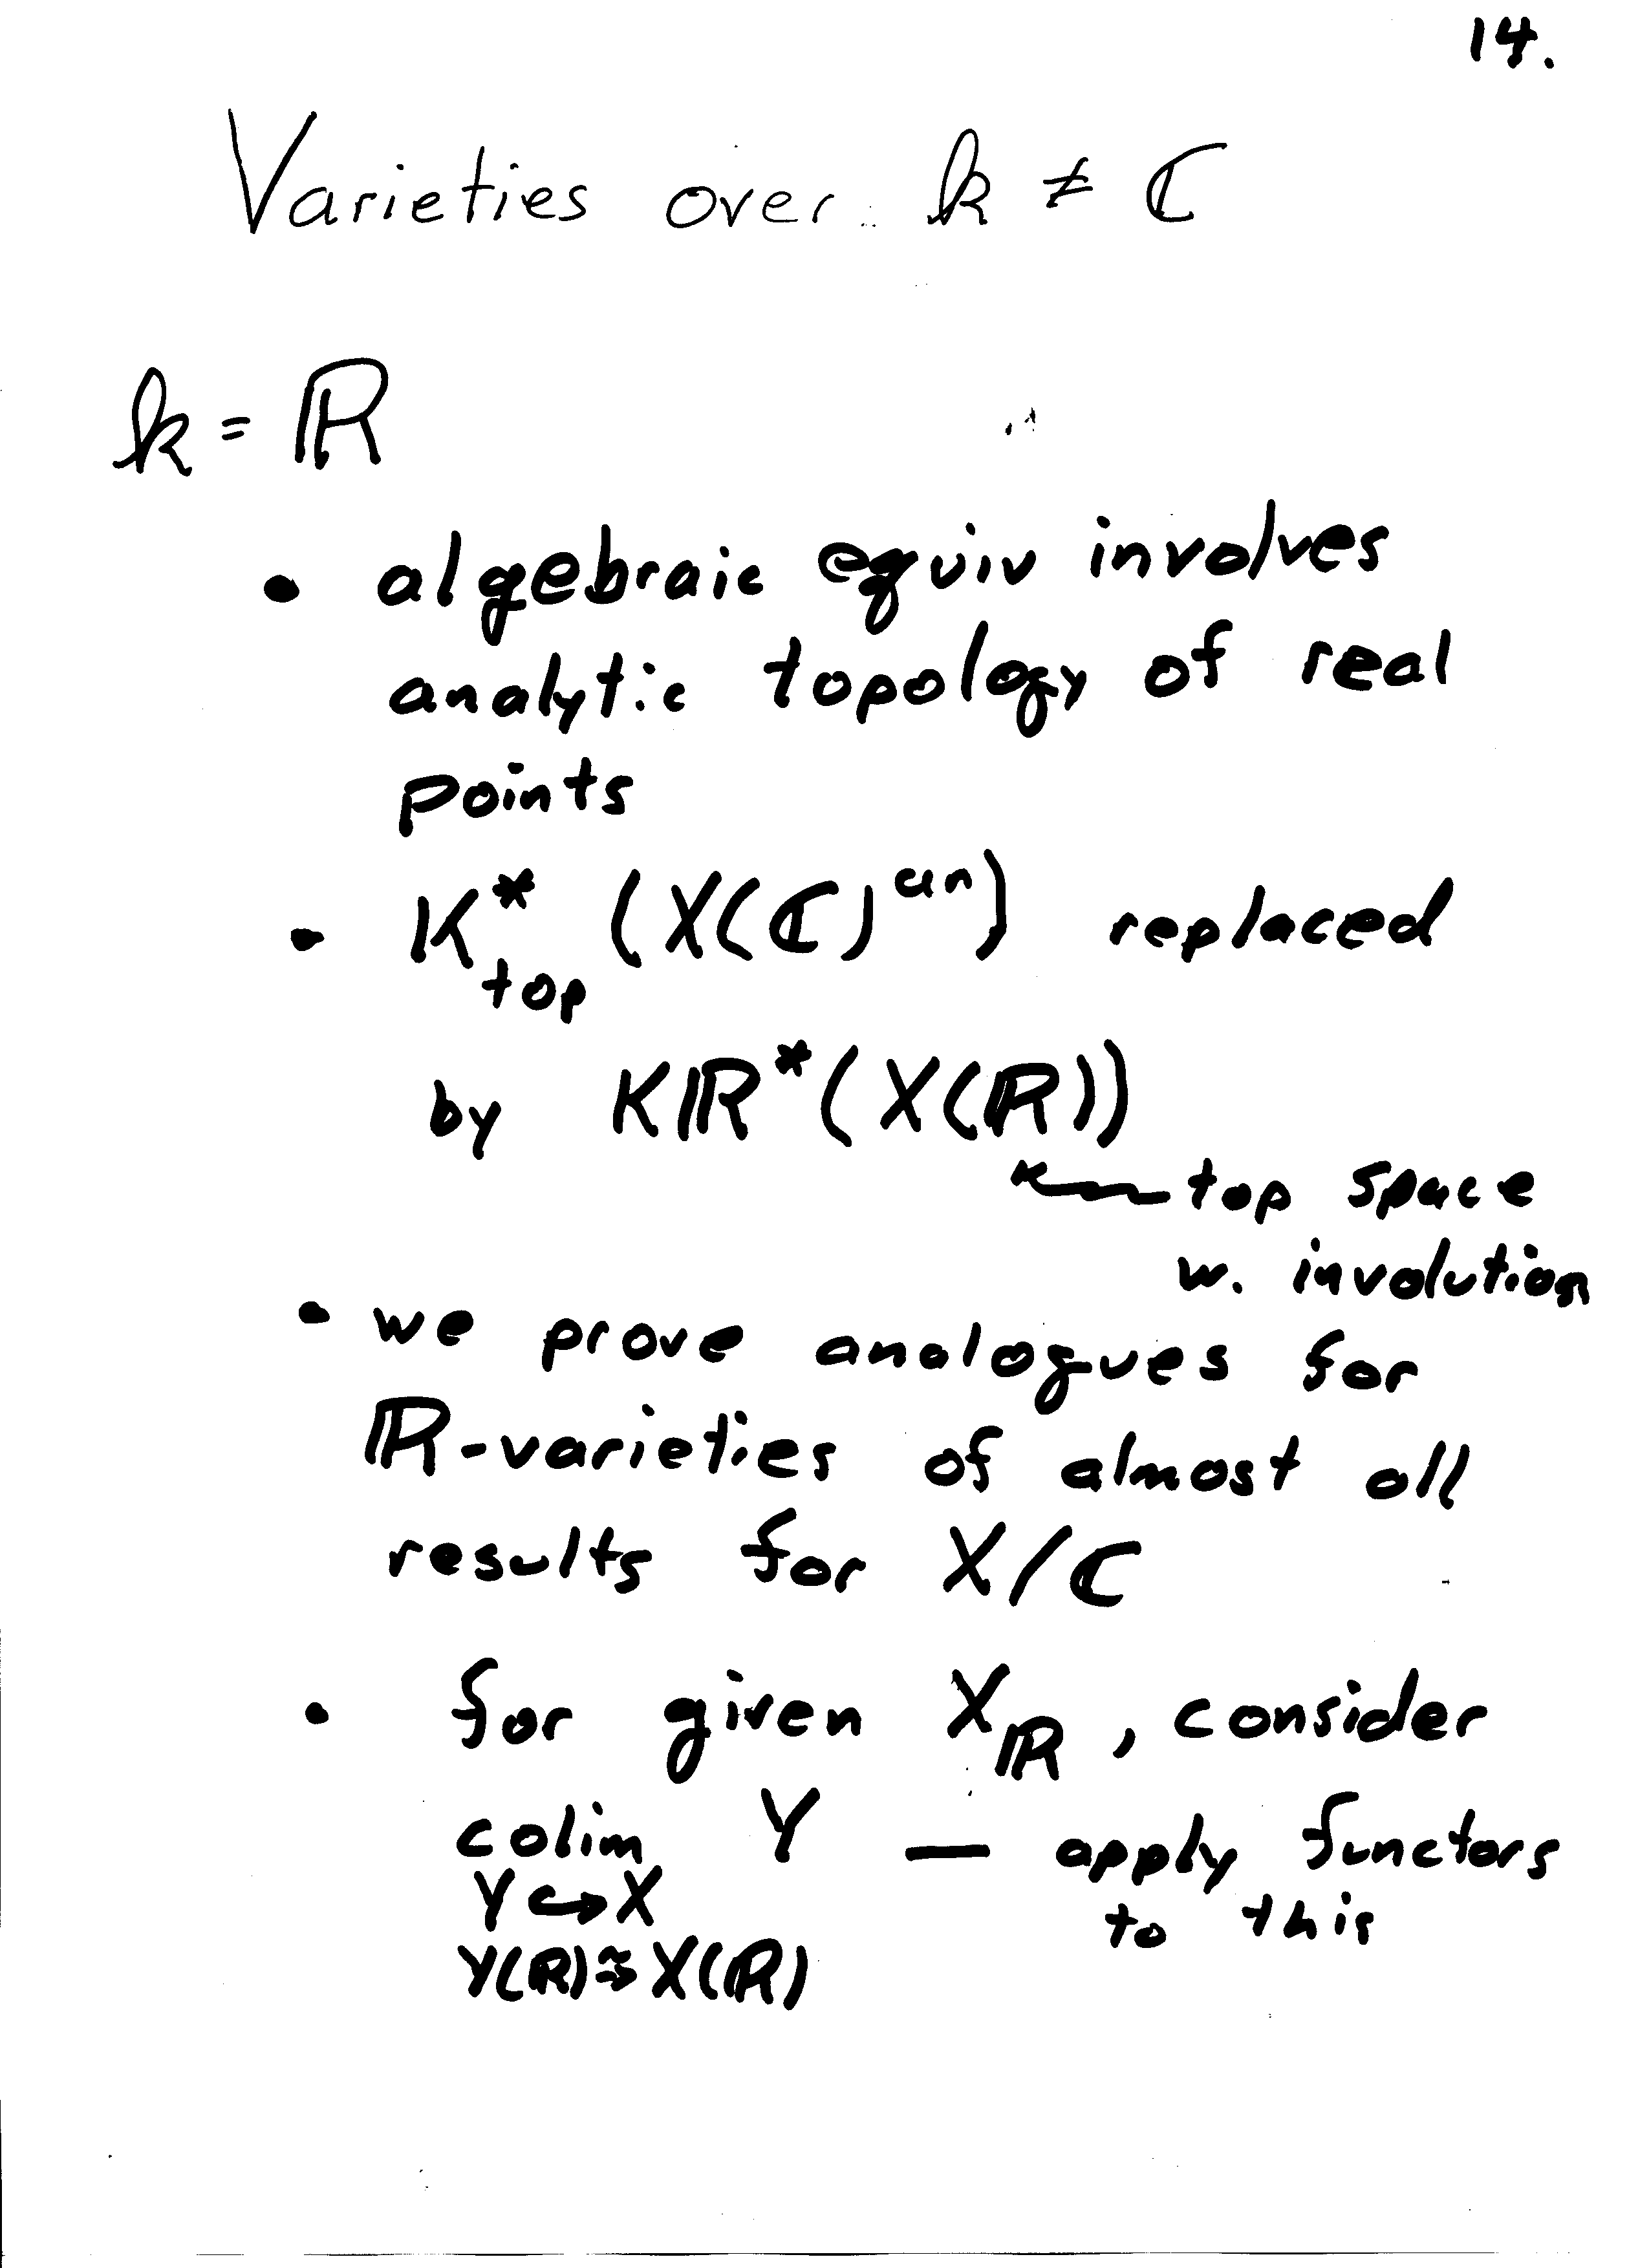 14.
Varieties over k ≠ ℂ
k = ℝ
• algebraic equiv involves
analytic topology of real
points
• K*top (X(ℂ)^an) replaced
by Kℝ*(X(ℝ))
↖ top space
w. involution
• we prove analogues for
ℝ-varieties of almost all
results for X/ℂ
• for given X_ℝ, consider
colim Y — apply functors
Y ↪ X to this
Y(ℝ) ≅ X(ℝ)